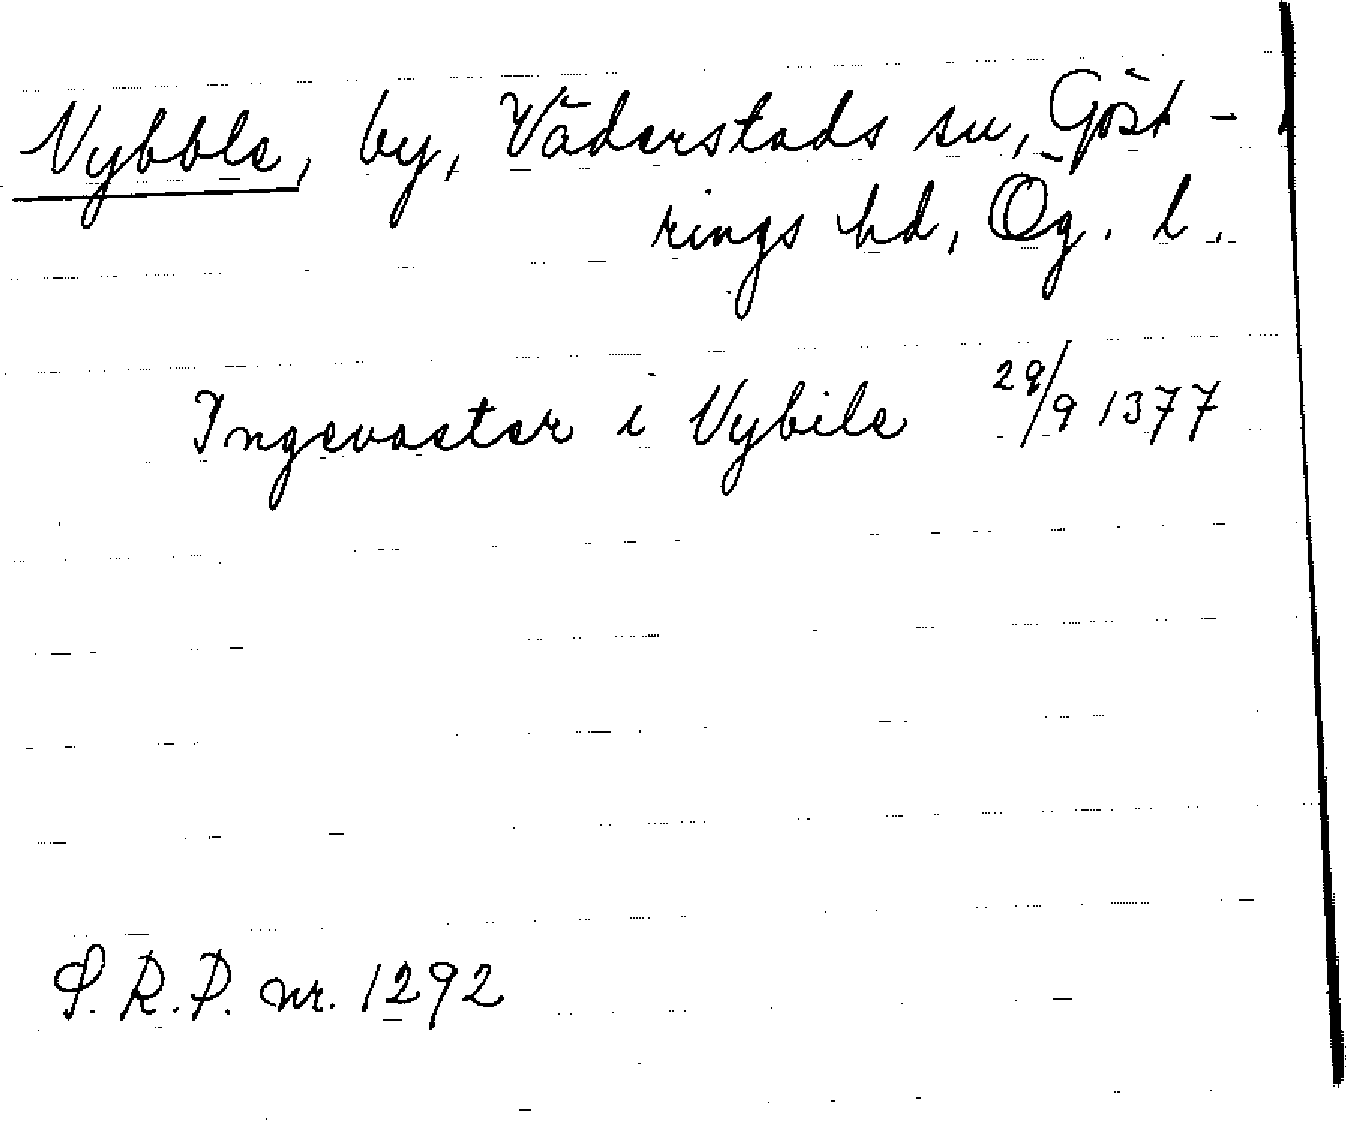 Vybble, by, Väderstads sn, Göst-
rings hd, Ög. l.
Ingevaster i Vybile 29/9 1377
S.R.P. nr. 1292